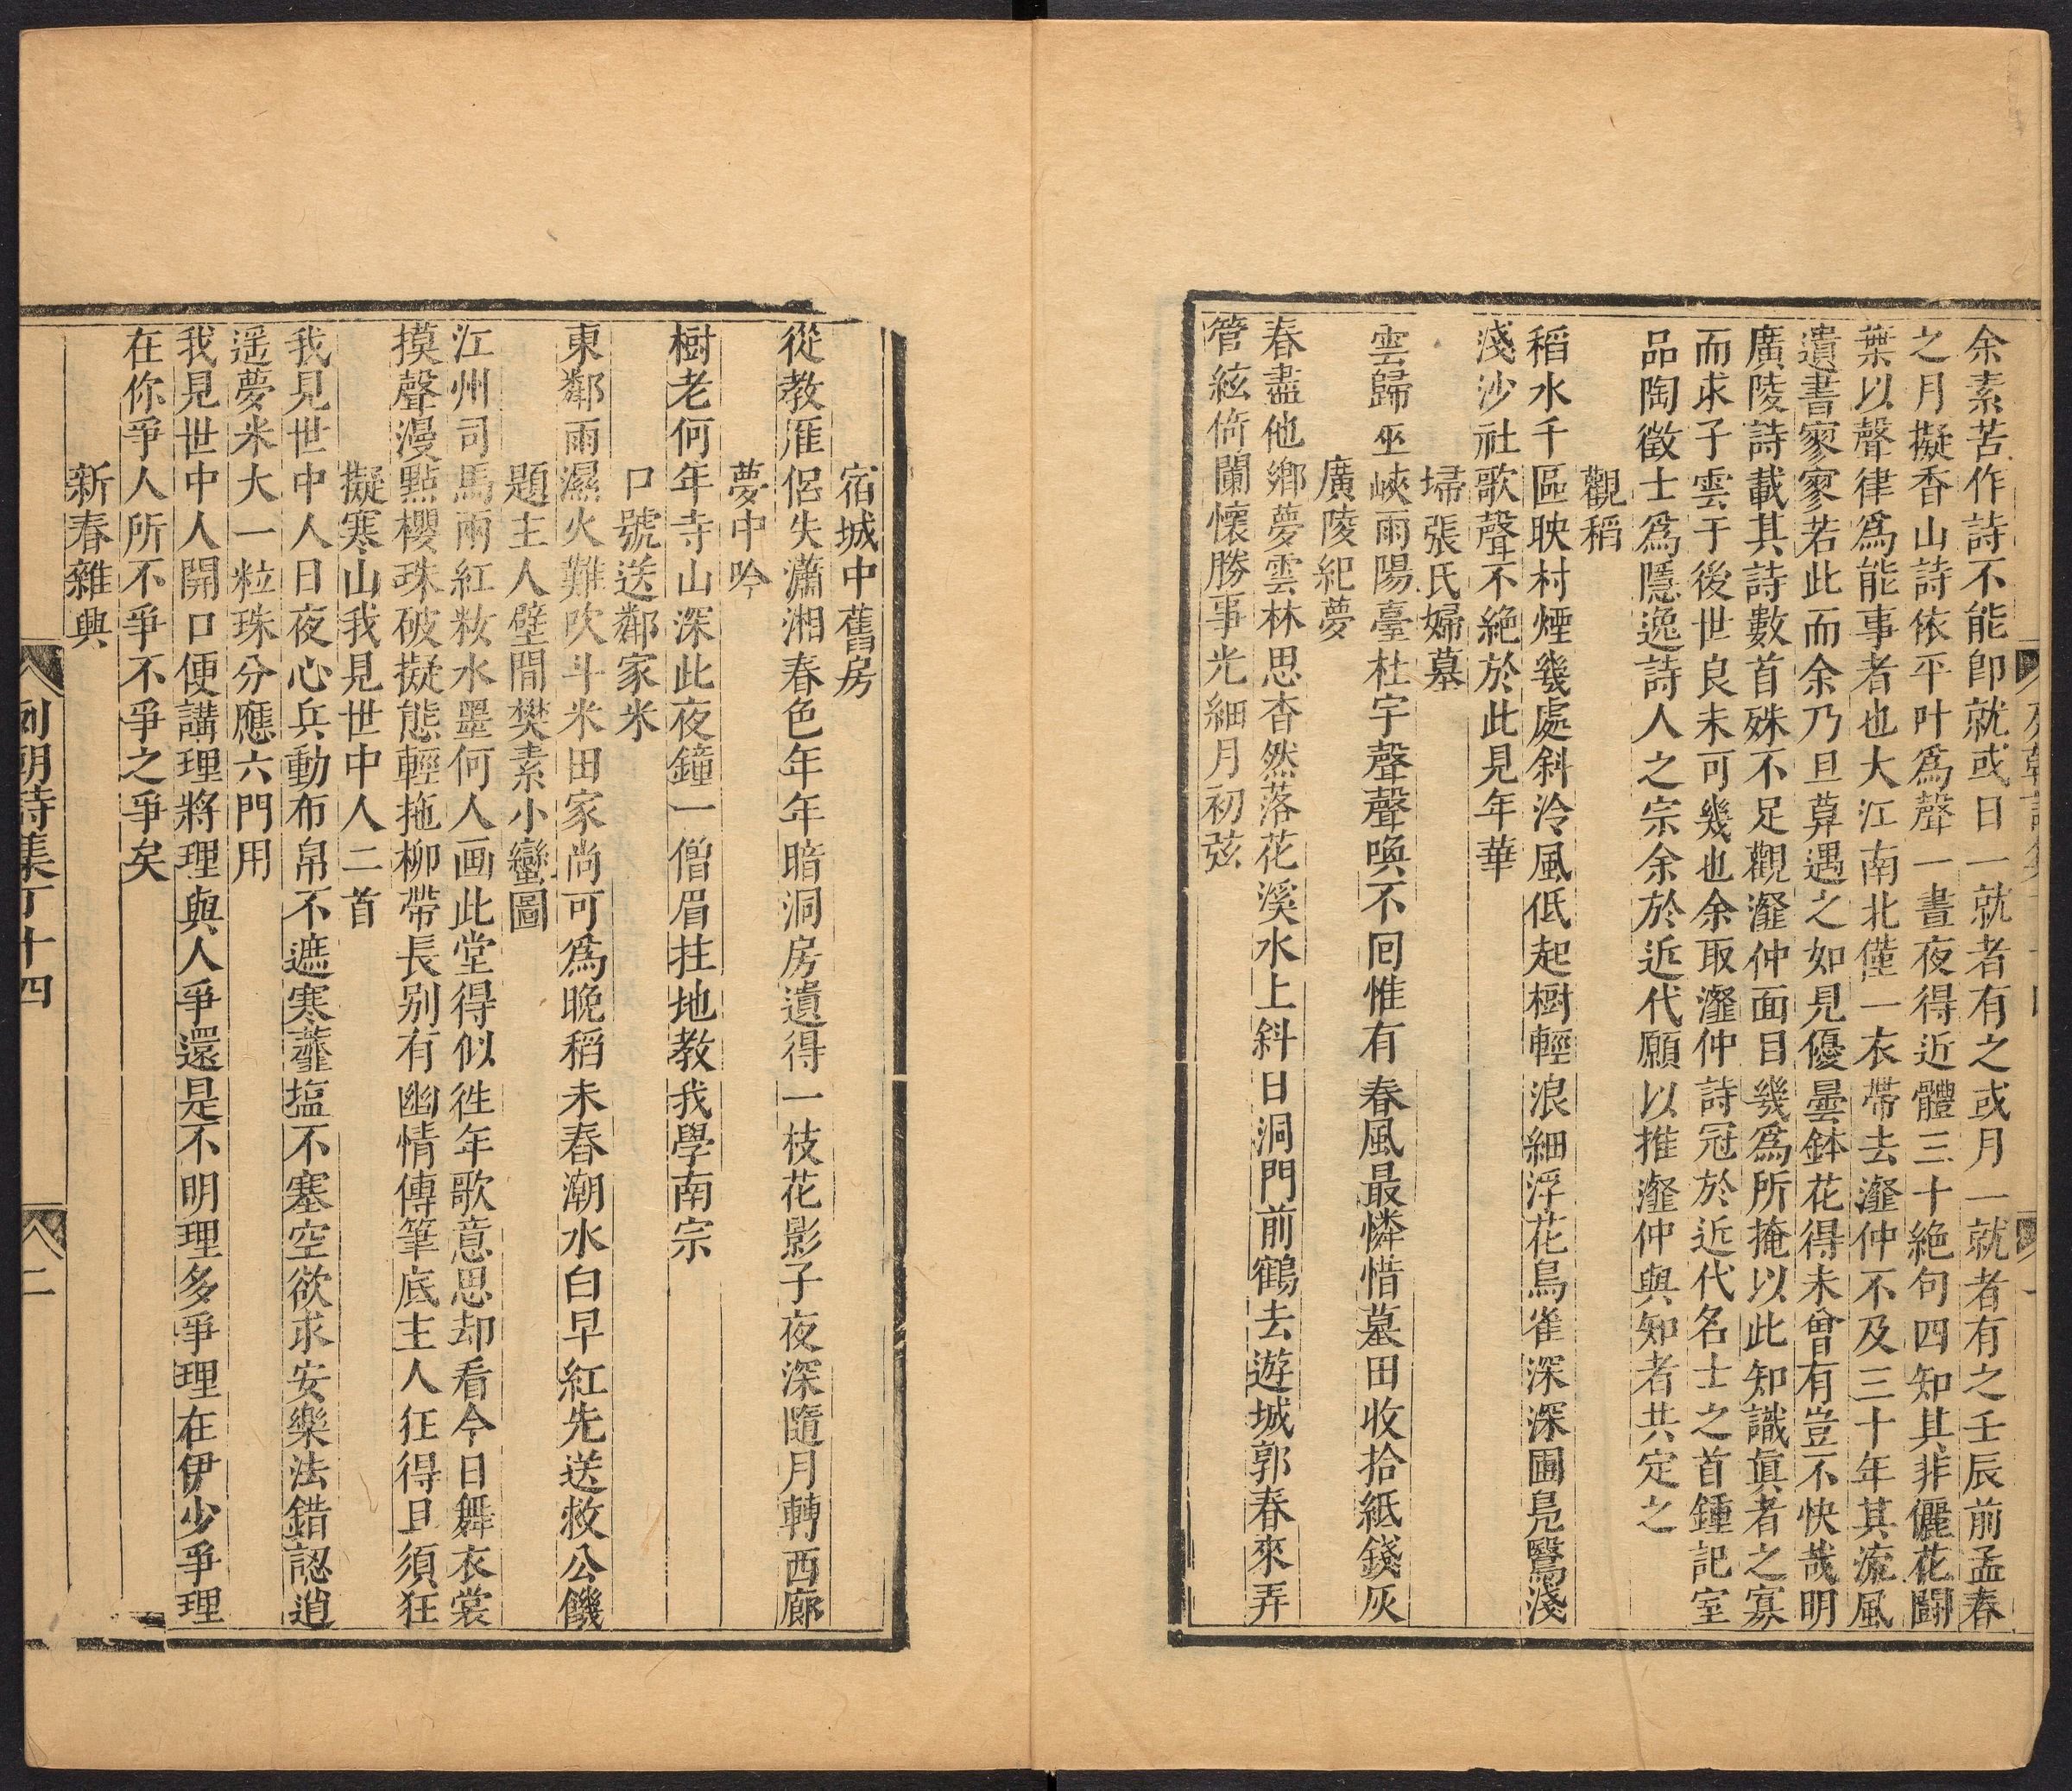 余素苦作詩不能卽就或日一就者有之或月一就者有之壬辰前孟春
之月擬香山詩依平叶爲聲一晝夜得近體三十絶句四知其非儷花鬪
葉以聲律爲能事者也大江南北僅一衣帶去瀣仲不及三十年其流風
遺書寥寥若此而余乃旦算遇之如見優曇鉢花得未曾有豈不快哉明
廣陵詩載其詩數首殊不足觀瀣仲面目幾爲所掩以此知識眞者之寡
而求子雲于後世良未可幾也余取瀣仲詩冠於近代名士之首鍾記室
品陶徵士爲隱逸詩人之宗余於近代願以推瀣仲與知者共定之
觀稻
稻水千區映村煙幾處斜泠風低起樹輕浪細浮花鳥雀深深圃鳧鷖淺
淺沙社歌聲不絶於此見年華
埽張氏婦墓
雲歸巫峽雨陽臺杜宇聲聲喚不回惟有春風最憐惜墓田收拾紙錢灰
廣陵紀夢
春盡他鄉夢雲林思杳然落花溪水上斜日洞門前鶴去遊城郭春來弄
管絃倚闌懷勝事光細月初弦
宿城中舊房
從教雁侶失瀟湘春色年年暗洞房遺得一枝花影子夜深隨月轉西廊
夢中吟
樹老何年寺山深此夜鐘一僧眉拄地教我學南宗
口號送鄰家米
東鄰雨濕火難吹斗米田家尚可爲晚稻未舂潮水白早紅先送救公饑
題主人壁間樊素小蠻圖
江州司馬雨紅妝水墨何人画此堂得似徃年歌意思却看今日舞衣裳
摸聲漫點櫻珠破擬態輕拖柳帶長别有幽情傳筆底主人狂得且須狂
擬寒山我見世中人二首
我見世中人日夜心兵動布帛不遮寒虀塩不塞空欲求安樂法錯認逍
遥夢米大一粒珠分應六門用
我見世中人開口便講理將理與人爭還是不明理多爭理在伊少爭理
在你爭人所不爭不爭之爭矣
新春雜興
列朝詩集丁十四
二